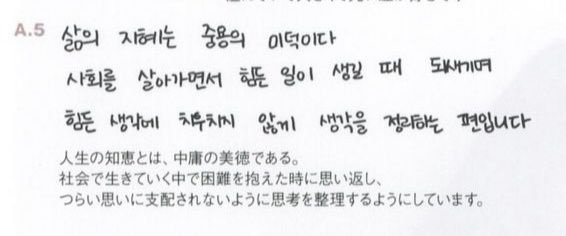 A.5 삶의 지혜는 중용의 미덕이다
사회를 살아가면서 힘든 일이 생길 때 되새기며
힘든 생각에 치우치지 않게 생각을 정리하는 편입니다
人生の知恵とは、中庸の美徳である。
社会で生きていく中で困難を抱えた時に思い返し、
つらい思いに支配されないように思考を整理するようにしています。